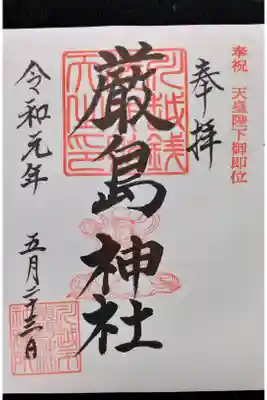 奉祝 天皇陛下御即位
奉拝
厳島神社
令和元年 五月二十三日